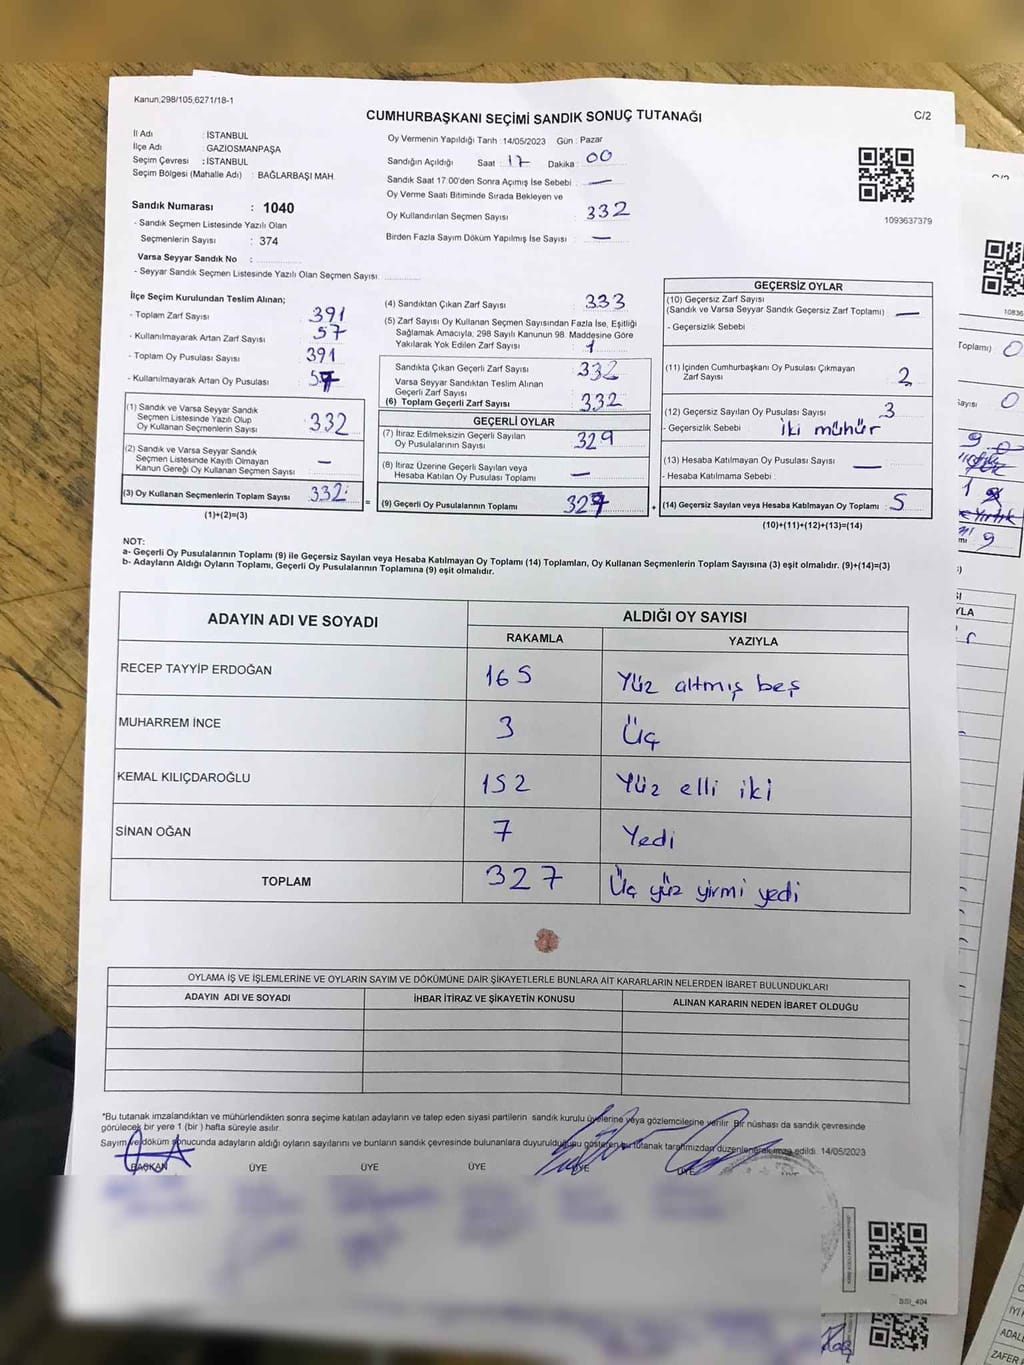 Kanun,298/105,6271/18-1
CUMHURBAŞKANI SEÇİMİ SANDIK SONUÇ TUTANAĞI
C/2
İl Adı : İSTANBUL
İlçe Adı : GAZİOSMANPAŞA
Seçim Çevresi : İSTANBUL
Seçim Bölgesi (Mahalle Adı) : BAĞLARBAŞI MAH.
Sandık Numarası : 1040
- Sandık Seçmen Listesinde Yazılı Olan
Seçmenlerin Sayısı : 374
Varsa Seyyar Sandık No :
- Seyyar Sandık Seçmen Listesinde Yazılı Olan Seçmen Sayısı
Oy Vermenin Yapıldığı Tarih : 14/05/2023 Gün : Pazar
Sandığın Açıldığı Saat : 17 Dakika : 00
Sandık Saat 17:00'den Sonra Açımış İse Sebebi : —
Oy Verme Saati Bitiminde Sırada Bekleyen ve
Oy Kullandırılan Seçmen Sayısı : 332
Birden Fazla Sayım Döküm Yapılmış İse Sayısı : —
1093637379
İlçe Seçim Kurulundan Teslim Alınan;
- Toplam Zarf Sayısı : 391
- Kullanılmayarak Artan Zarf Sayısı : 57
- Toplam Oy Pusulası Sayısı : 391
- Kullanılmayarak Artan Oy Pusulası : 57
(1) Sandık ve Varsa Seyyar Sandık
Seçmen Listesinde Yazılı Olup
Oy Kullanan Seçmenlerin Sayısı : 332
(2) Sandık ve Varsa Seyyar Sandık
Seçmen Listesinde Kayıtlı Olmayan
Kanun Gereği Oy Kullanan Seçmen Sayısı : —
(3) Oy Kullanan Seçmenlerin Toplam Sayısı : 332
(1)+(2)=(3)
(4) Sandıktan Çıkan Zarf Sayısı : 333
(5) Zarf Sayısı Oy Kullanan Seçmen Sayısından Fazla İse, Eşitliği
Sağlamak Amacıyla; 298 Sayılı Kanunun 98. Maddesine Göre
Yakılarak Yok Edilen Zarf Sayısı : 1
Sandıkta Çıkan Geçerli Zarf Sayısı : 332
Varsa Seyyar Sandıktan Teslim Alınan
Geçerli Zarf Sayısı :
(6) Toplam Geçerli Zarf Sayısı : 332
GEÇERLİ OYLAR
(7) İtiraz Edilmeksizin Geçerli Sayılan
Oy Pusulalarının Sayısı : 329
(8) İtiraz Üzerine Geçerli Sayılan veya
Hesaba Katılan Oy Pusulası Toplamı : —
= (9) Geçerli Oy Pusulalarının Toplamı : 327
GEÇERSİZ OYLAR
(10) Geçersiz Zarf Sayısı
(Sandık ve Varsa Seyyar Sandık Geçersiz Zarf Toplamı) : —
- Geçersizlik Sebebi
(11) İçinden Cumhurbaşkanı Oy Pusulası Çıkmayan
Zarf Sayısı : 2
(12) Geçersiz Sayılan Oy Pusulası Sayısı : 3
- Geçersizlik Sebebi : İki mühür
(13) Hesaba Katılmayan Oy Pusulası Sayısı : —
- Hesaba Katılmama Sebebi :
+ (14) Geçersiz Sayılan veya Hesaba Katılmayan Oy Toplamı : 5
(10)+(11)+(12)+(13)=(14)
NOT:
a- Geçerli Oy Pusulalarının Toplamı (9) ile Geçersiz Sayılan veya Hesaba Katılmayan Oy Toplamı (14) Toplamları, Oy Kullanan Seçmenlerin Toplam Sayısına (3) eşit olmalıdır. (9)+(14)=(3)
b- Adayların Aldığı Oyların Toplamı, Geçerli Oy Pusulalarının Toplamına (9) eşit olmalıdır.
ADAYIN ADI VE SOYADI ALDIĞI OY SAYISI
RAKAMLA YAZIYLA
RECEP TAYYİP ERDOĞAN 165 Yüz altmış beş
MUHARREM İNCE 3 Üç
KEMAL KILIÇDAROĞLU 152 Yüz elli iki
SİNAN OĞAN 7 Yedi
TOPLAM 327 Üç yüz yirmi yedi
OYLAMA İŞ VE İŞLEMLERİNE VE OYLARIN SAYIM VE DÖKÜMÜNE DAİR ŞİKAYETLERLE BUNLARA AİT KARARLARIN NELERDEN İBARET BULUNDUKLARI
ADAYIN ADI VE SOYADI İHBAR İTİRAZ VE ŞİKAYETİN KONUSU ALINAN KARARIN NEDEN İBARET OLDUĞU
*Bu tutanak imzalandıktan ve mühürlendikten sonra seçime katılan adayların ve talep eden siyasi partilerin sandık kurulu üyelerine veya gözlemcilerine verilir. Bir nüshası da sandık çevresinde
görülecek bir yere 1 (bir) hafta süreyle asılır.
Sayım ve döküm sonucunda adayların aldığı oyların sayılarını ve bunların sandık çevresinde bulunanlara duyurulduğunu gösteren bu tutanak tarafımızdan düzenlenerek imza edildi. 14/05/2023
BAŞKAN ÜYE ÜYE ÜYE ÜYE ÜYE
BSI_404